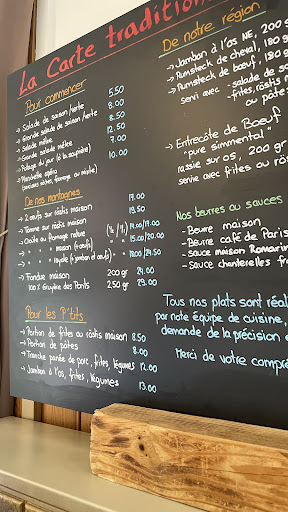 La Carte tradition
Pour commencer
→ Salade de saison/verte 5.50
→ Grande salade de saison/verte 8.50
→ Salade mêlée 7.50
→ Grande salade mêlée 12.50
→ Potage du jour (à la soupière) 7.00
→ agplis 10.00
(saucisse sèche, fromage ou mixte)
De nos montagnes
→ 2 œufs sur röstis maison 17.00
→ Tomme sur röstis maison 19.50
→ Croûte au fromage nature (½ / 1/1) 14.00/17.00
→ " " " maison (1 œuf) " 15.00/20.00
→ " " " royale (1 jambon et œuf) " 18.00/24.50
→ Fondue maison 200 gr 24.00
100% Gruyère des Ponts 250 gr 29.00
Pour les P'tits
→ Portion de frites ou röstis maison 8.50
→ Portion de pâtes 8.00
→ Tranche panée de porc, frites, légumes 12.00
→ Jambon à l'os, frites, légumes 13.00
De notre région
→ Jambon à l'os NE, 200 g
→ Rumsteck de cheval, 180 g
→ Rumsteck de bœuf, 180 g
servi avec - salade de sa
- frites, röstis m
ou pâtes
→ Entrecôte de Boeuf
"pure simmental"
rassie sur os, 200 gr
servie avec frites ou rös
Nos beurres ou sauces
- Beurre maison
- Beurre café de Paris
- Sauce maison Romarin
- Sauce chanterelles fra
Tous nos plats sont réal
par notre équipe de cuisine,
demande de la précision e
Merci de votre compré